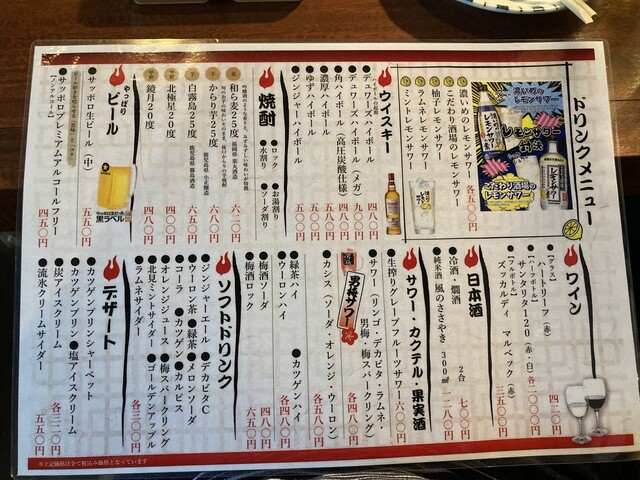 ドリンクメニュー
濃いめの
レモンサワー
レモンサワー
対決
こだわり酒場の
レモンサワー
濃いめレモンサワー
こだわり酒場のレモンサワー
柚子レモンサワー
ラムネレモンサワー
ミントレモンサワー
各五五〇円
ウイスキー
デュワーズハイボール 四八〇円
デュワーズハイボール（メガ） 九〇〇円
角ハイボール（高圧炭酸仕様） 五四〇円
濃厚ハイボール 五八〇円
ゆずハイボール 五〇〇円
ジンジャーハイボール 五〇〇円
焼酎
●ロック ●お湯割り
●水割り ●ソーダ割り
和ら麦25度 六二〇円
からり芋25度 六五〇円
白霧島25度 五八〇円
北極星20度 四八〇円
鏡月20度 四八〇円
やっぱり
ビール
●サッポロ生ビール（中） 五五〇円
サッポロ生ビール
黒ラベル
●サッポロプレミアムアルコールフリー
【ノンアルコール】
四五〇円
ワイン
【グラス】
●ハートリーフ（赤） 四二〇円
【ハーフボトル】
●サンタリタ120（赤・白） 各二〇〇〇円
【フルボトル】
●ズッカルディ マルベック（赤） 三五〇〇円
日本酒
●冷酒 燗酒 2合 七〇〇円
●純米酒 風のささやき 300㎖ 一二八〇円
サワー・カクテル・果実酒
●生搾りグレープフルーツサワー 六〇〇円
●サワー（リンゴ・デカビタ・ラムネ・
男梅・梅スパークリング）
各四八〇円
男梅サワー
●カシス（ソーダ・オレンジ・ウーロン）
各五八〇円
●緑茶ハイ ●カツゲンハイ
●ウーロンハイ 各四八〇円
●梅酒ソーダ 四八〇円
●梅酒ロック 六五〇円
ソフトドリンク
●ジンジャーエール ●デカビタC
●ウーロン茶 ●緑茶 ●メロンソーダ
●コーラ ●カツゲン ●カルピス
●オレンジジュース ●梅スパークリング
●北見ミントサイダー ●ゴールデンアップル
●ラムネサイダー 各三〇〇円
デザート
●カツゲンプリンシャーベット
●カツゲンプリン ●塩アイスクリーム
●炭アイスクリーム 各三二〇円
●流氷クリームサイダー 五五〇円
※上記価格は全て税込み価格となっています